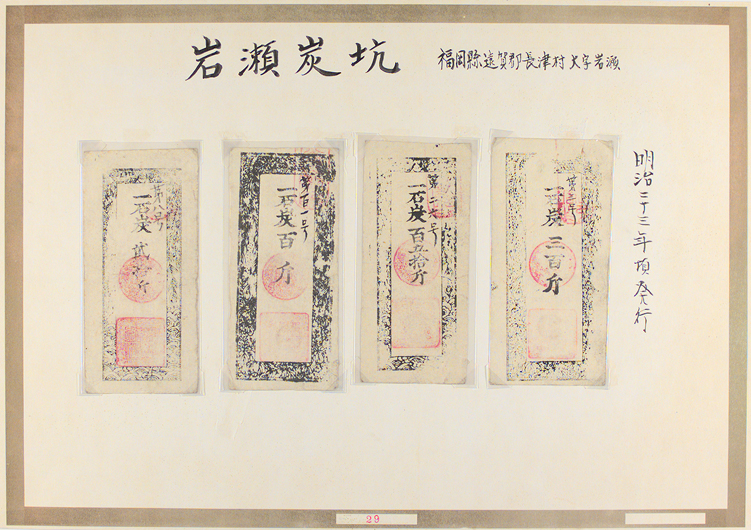 岩瀬炭坑
福岡縣遠賀郡長津村大字岩瀬
明治二十三年頃発行
第二号
一石炭三百斤
第二七号
一石炭百五拾斤
第百一号
一石炭百斤
第八号
一石炭貳拾斤
29